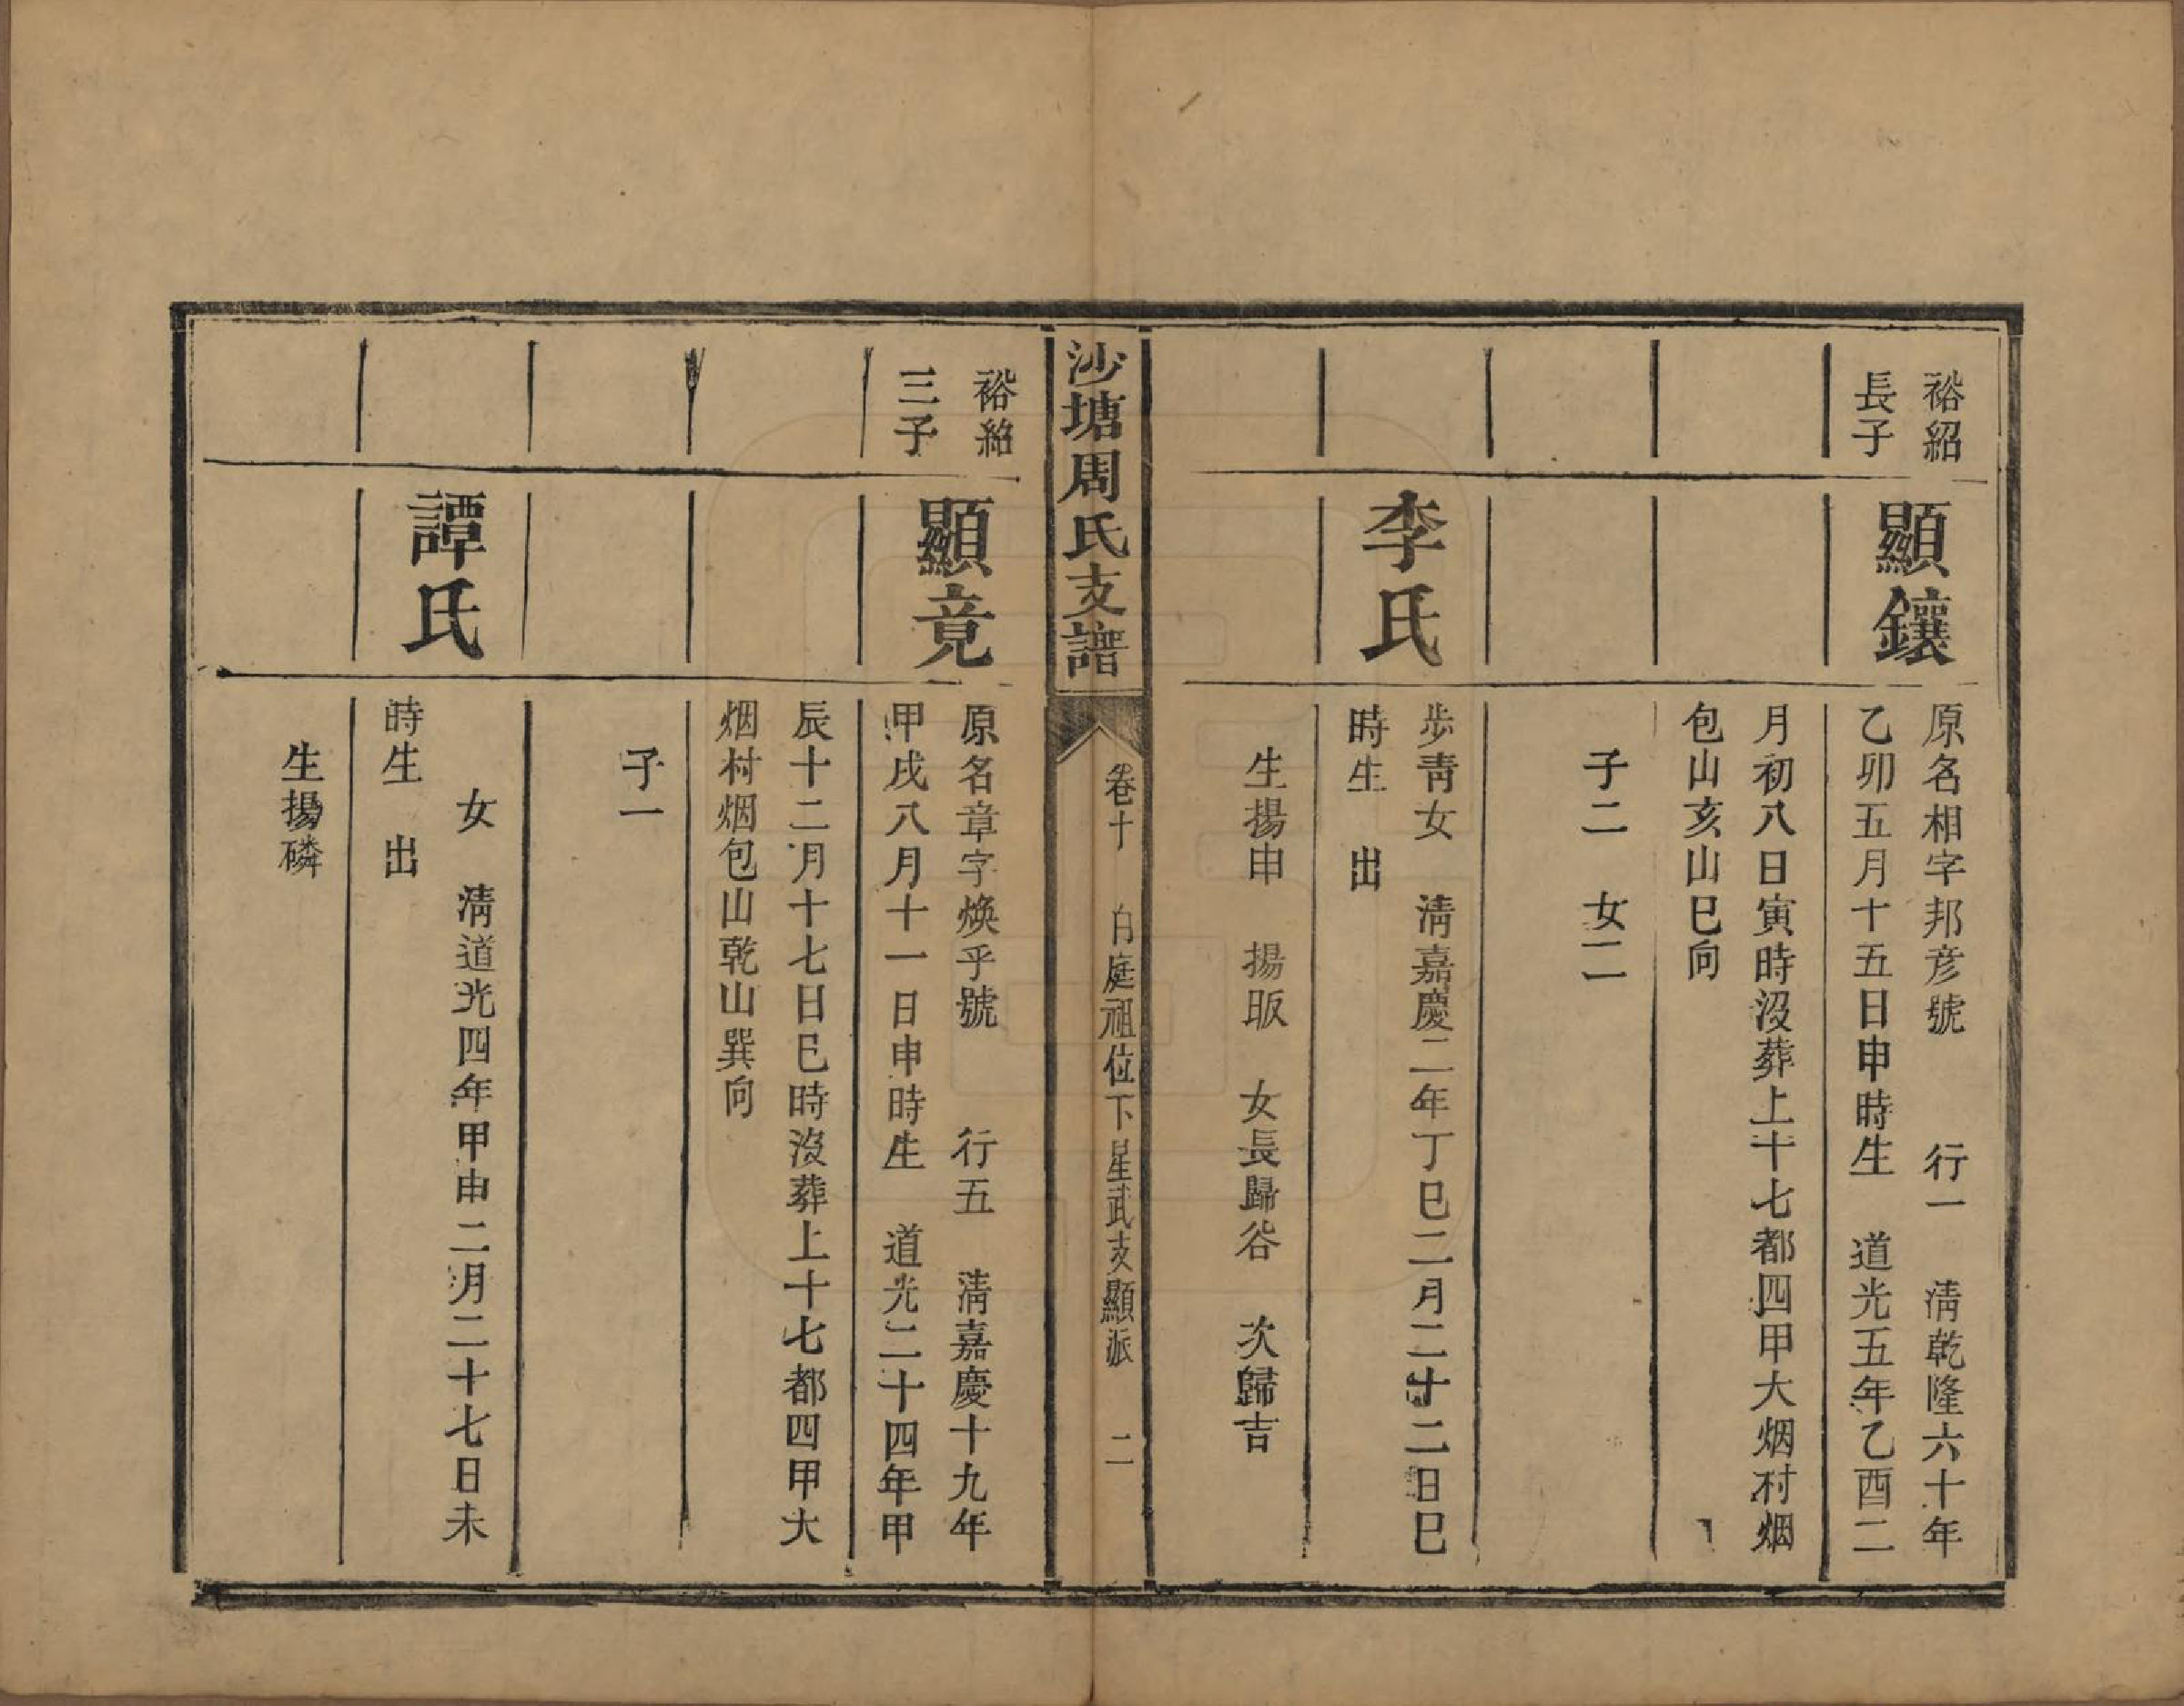 裕紹
長子
顯鑲
原名相字邦彦號　行一　清乾隆六十年
乙卯五月十五日申時生　道光五年乙酉二
月初八日寅時沒葬上十七都四甲大烟村烟
包山亥山巳向
子二　女二
李氏
步青女　清嘉慶二年丁巳二月二十二日巳
時生　出
生揚申　揚昄　女長歸谷　次歸吉
沙塘周氏支譜
卷十　白庭祖位下星武支顯派　二
裕紹
三子
顯竟
原名章字煥乎號　行五　清嘉慶十九年
甲戌八月十一日申時生　道光二十四年甲
辰十二月十七日巳時沒葬上十七都四甲大
烟村烟包山乾山巽向
子一
譚氏
女　清道光四年甲申二月二十七日未
時生　出
生揚磷